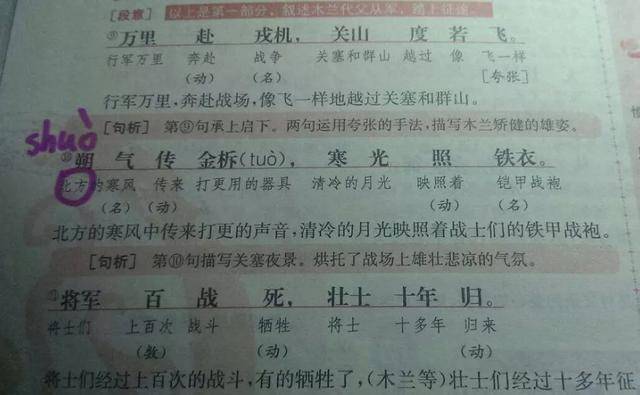 [段意] 以上是第一部分,叙述木兰代父从军,踏上征途。
⑨万里 赴 戎机, 关山 度 若 飞。
行军万里 奔赴 战争 关塞和群山 越过 像 飞一样
(动) (名) [夸张]
行军万里,奔赴战场,像飞一样地越过关塞和群山。
[句析] 第⑨句承上启下。两句运用夸张的手法,描写木兰矫健的雄姿。
shuò
⑩朔 气 传 金柝(tuò), 寒 光 照 铁衣。
北方的寒风 传来 打更用的器具 清冷的月光 映照着 铠甲战袍
(名) (动) (动) (名)
北方的寒风中传来打更的声音,清冷的月光映照着战士们的铁甲战袍。
[句析] 第⑩句描写关塞夜景。烘托了战场上雄壮悲凉的气氛。
⑪将军 百 战 死, 壮士 十年 归。
将士们 上百次 战斗 牺牲 将士 十多年 归来
(数) (动) (动)
将士们经过上百次的战斗,有的牺牲了,(木兰等)壮士们经过十多年征